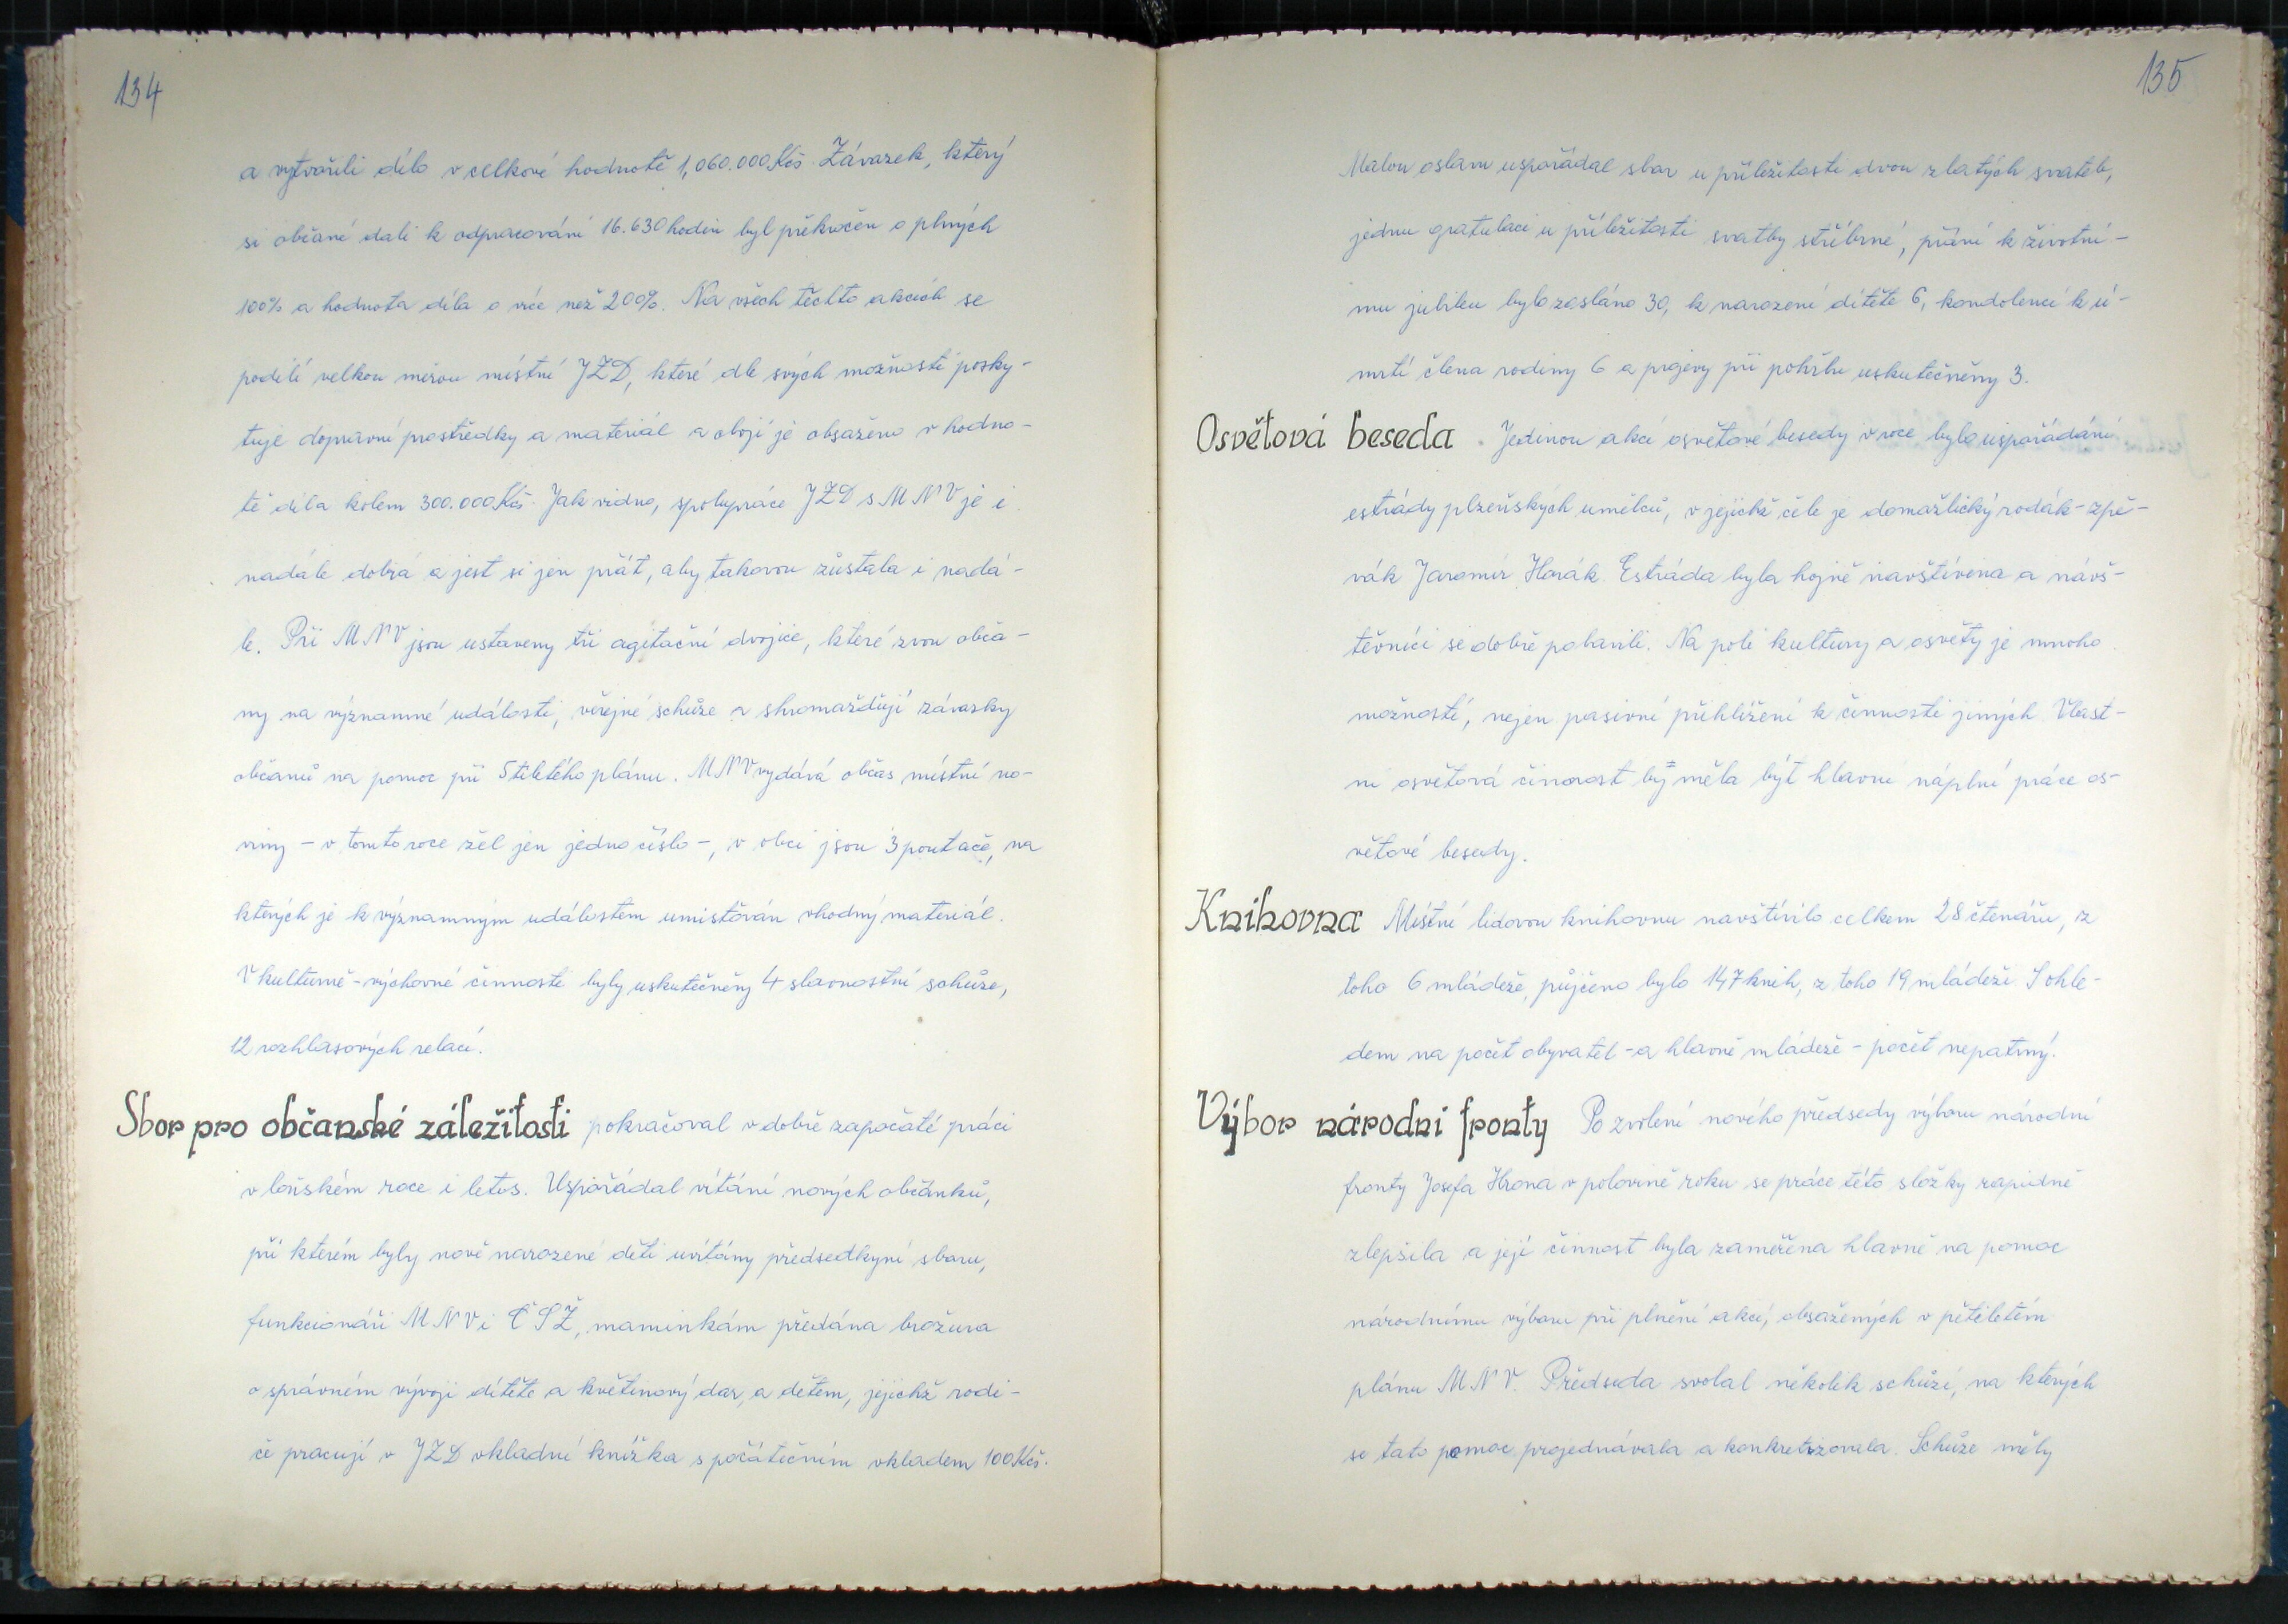 134
a vytvořili dílo v celkové hodnotě 1,060.000 Kčs. Závazek, který
si občané dali k odpracování 16.630 hodin byl překročen o plných
100% a hodnota díla o více než 200%. Na všech těchto akcích se
podílí velkou mírou místní JZD, které dle svých možností posky-
tuje dopravní prostředky a materiál a obojí je obsaženo v hodno-
tě díla kolem 300.000 Kčs. Jak vidno, spolupráce JZD s MNV je i
nadále dobrá a jest si jen přát, aby takovou zůstala i nadá-
le. Při MNV jsou ustaveny tři agitační dvojice, které zvou obča-
ny na významné události, veřejné schůze a shromažďují závazky
občanů na pomoc při 5tiletého plánu. MNV vydává občas místní no-
viny - v tomto roce žel jen jedno číslo -, v obci jsou 3 poutače, na
kterých je k významným událostem umisťován vhodný materiál.
V kulturně-výchovné činnosti byly uskutečněny 4 slavnostní schůze,
12 rozhlasových relací.
Sbor pro občanské záležitosti pokračoval v dobře započaté práci
v loňském roce i letos. Uspořádal vítání nových občánků,
při kterém byly nově narozené děti uvítány předsedkyní sboru,
funkcionáři MNV i ČSŽ, maminkám předána brožura
o správném vývoji dítěte a květinový dar, a dětem, jejichž rodi-
če pracují v JZD vkladní knížka s počátečním vkladem 100 Kčs.
135
Malou oslavu uspořádal sbor u příležitosti dvou zlatých svateb,
jednu gratulaci u příležitosti svatby stříbrné, přání k životní-
mu jubileu bylo zasláno 30, k narození dítěte 6, kondolencí k ú-
mrtí člena rodiny 6 a projevy při pohřbu uskutečněny 3.
Osvětová beseda. Jedinou akcí osvětové besedy v roce bylo uspořádání
estrády plzeňských umělců, v jejichž čele je domažlický rodák-zpě-
vák Jaromír Horák. Estráda byla hojně navštívena a návš-
těvníci se dobře pobavili. Na poli kultury a osvěty je mnoho
možností, nejen pasivní přihlížení k činnosti jiných. Vlast-
ní osvětová činnost by měla být hlavní náplní práce os-
větové besedy.
Knihovna Místní lidovou knihovnu navštívilo celkem 28 čtenářů, z
toho 6 mládeže, půjčeno bylo 147 knih, z toho 19 mládeži. S ohle-
dem na počet obyvatel - a hlavně mládeže - počet nepatrný.
Výbor národní fronty Po zvolení nového předsedy výboru národní
fronty Josefa Hrona v polovině roku se práce této složky rapidně
zlepšila a její činnost byla zaměřena hlavně na pomoc
národnímu výboru při plnění akcí, obsažených v pětiletém
plánu MNV. Předseda svolal několik schůzí, na kterých
se tato pomoc projednávala a konkretizovala. Schůze měly